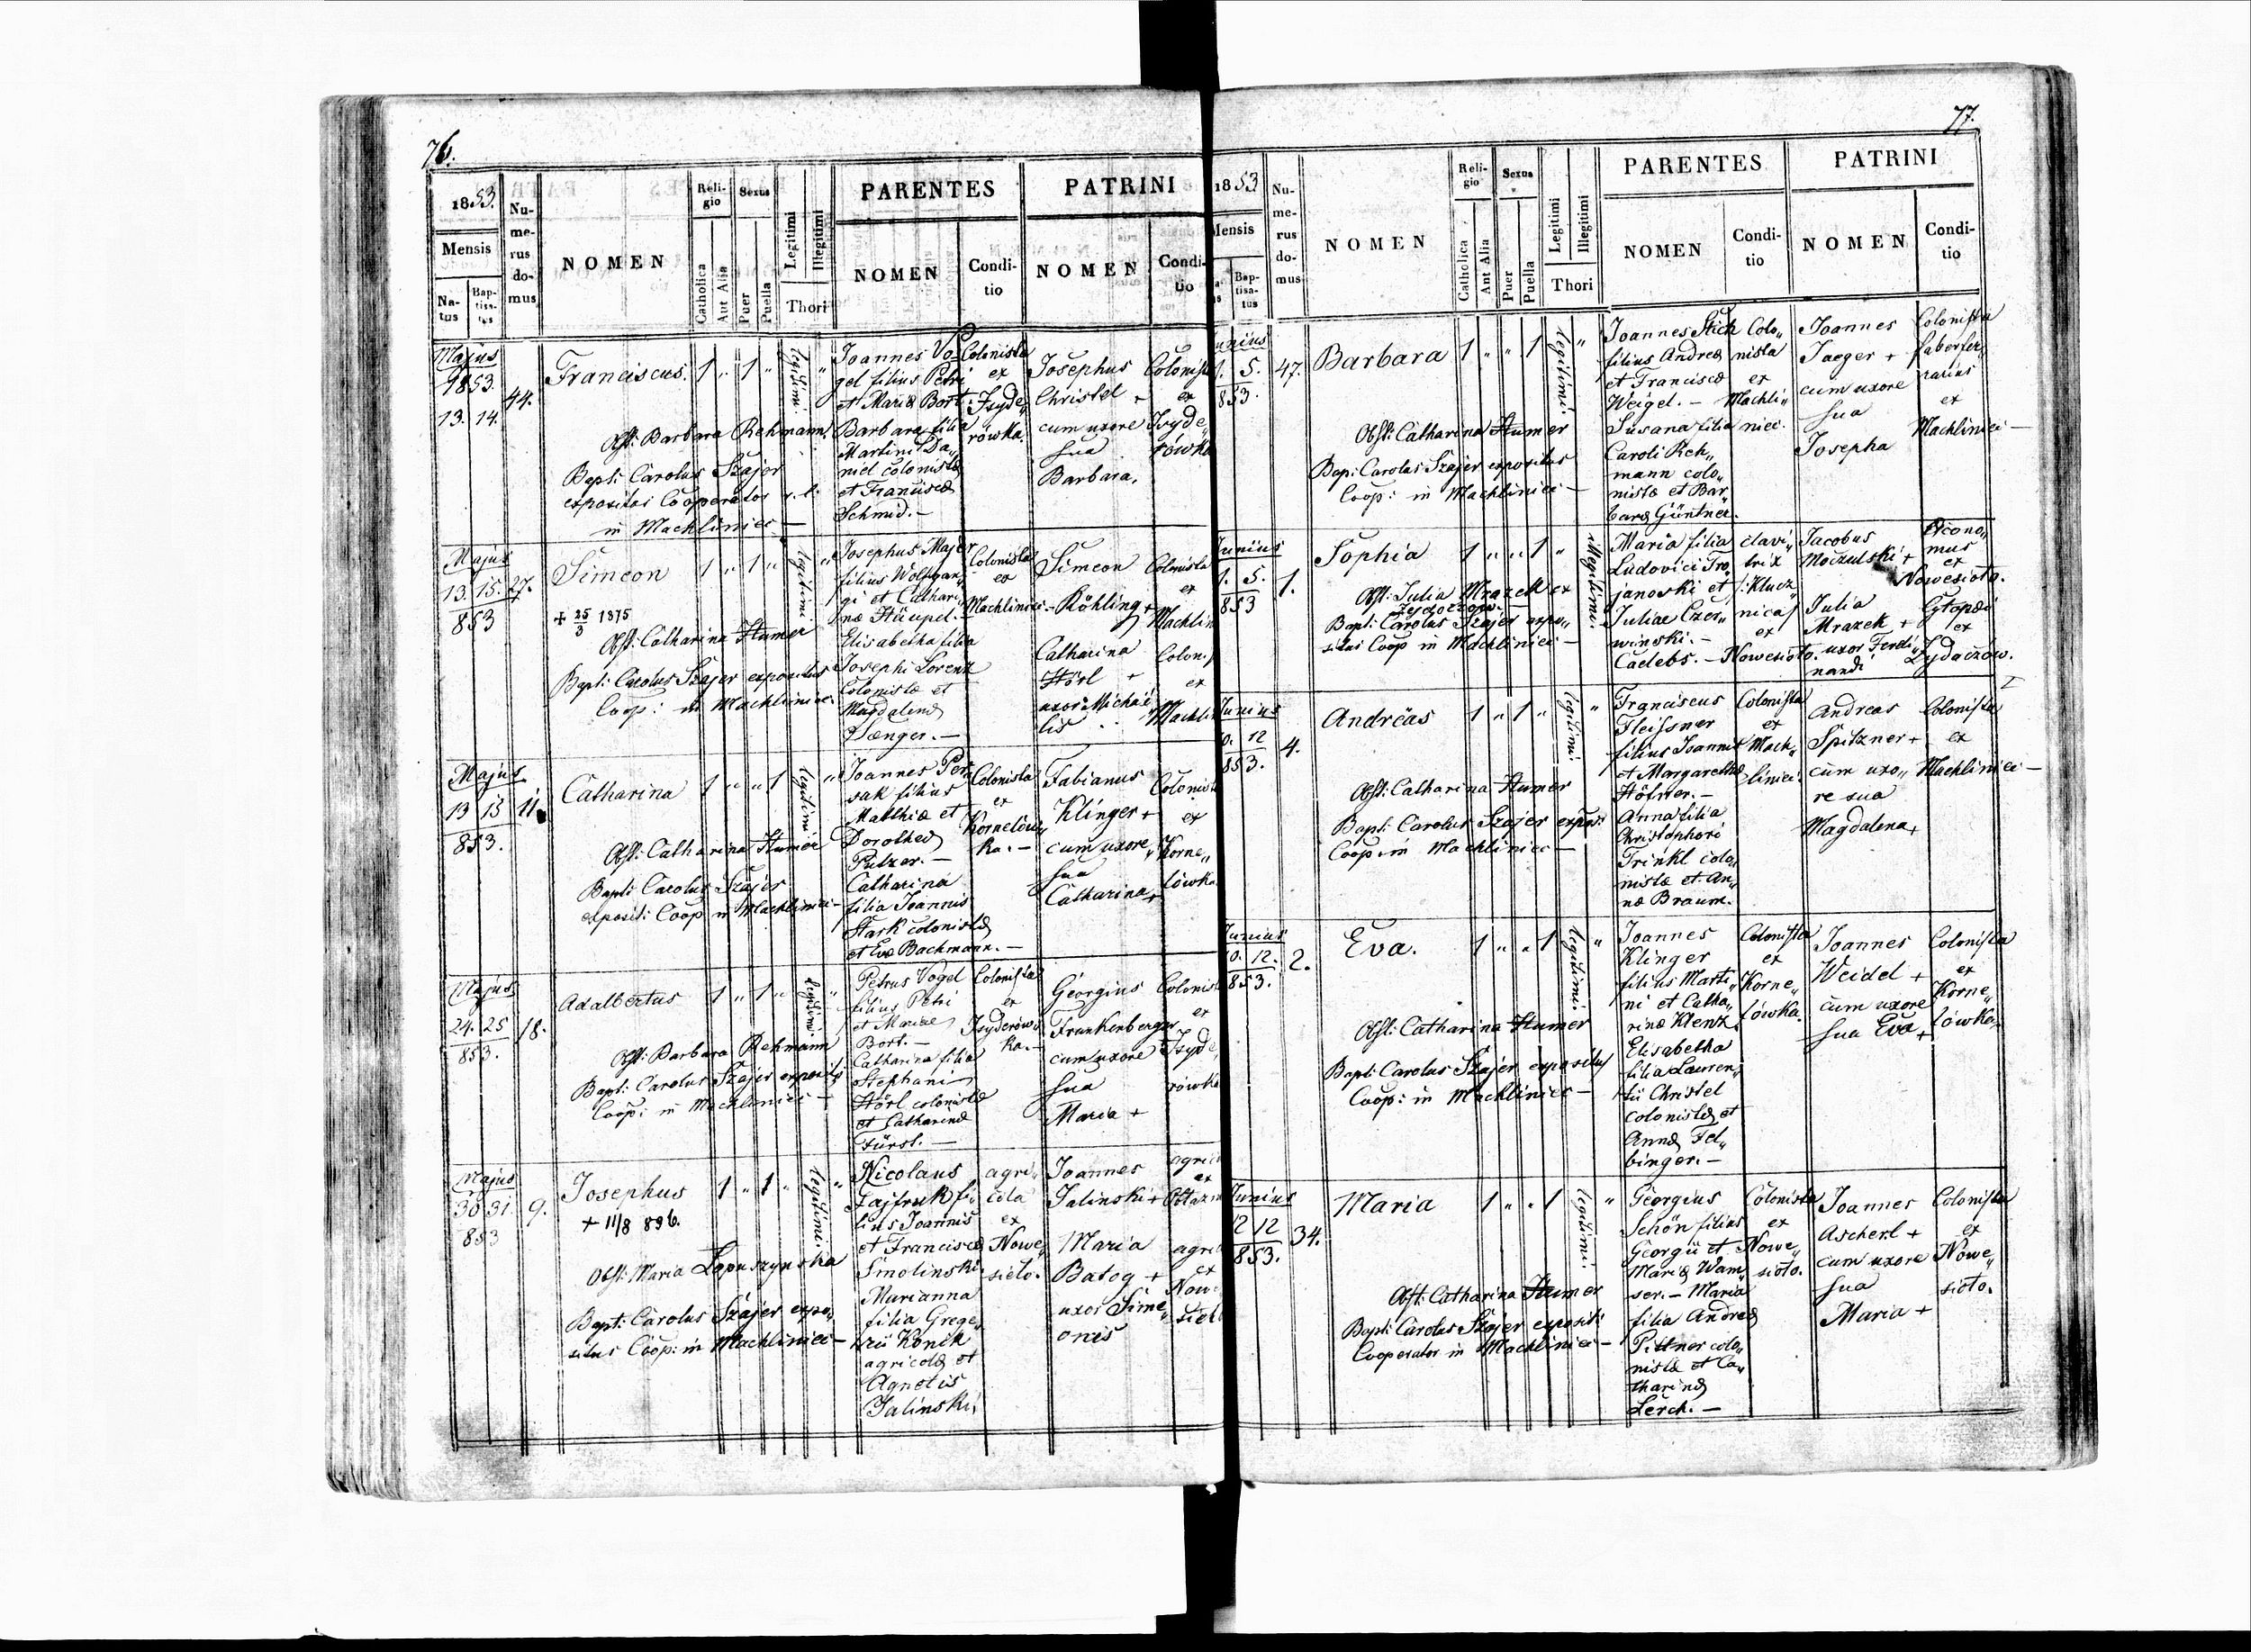 76.
1853.
Mensis
Natus
Baptisatus
Numerus domus
NOMEN
Religio
Catholica
Aut Alia
Sexus
Puer
Puella
Legitimi
Illegitimi
Thori
PARENTES
NOMEN
Conditio
PATRINI
NOMEN
Conditio
Majus
1853.
13. 14.
44.
Franciscus. 1 „ 1 „
legitimi.
„
Obst: Barbara Rehmann.
Bapti: Carolus Szajer
expositus Cooperator r. l.
in Machliniec —
Joannes Vo„
gel filius Petri
et Mariæ Bort.
Barbara filia
Martini Da„
niel colonistæ
et Franciscæ
Schmid. —
Colonista
ex
Isyde„
rówka.
Josephus
Christel +
cum uxore
sua
Barbara.
Colonist
ex
Isyde„
rówka
Majus
13. 15.
853
27.
Simeon 1 „ 1 „
legitimi.
„
+ 25/3 1875
Obst: Catharina Stumer
Bapti: Carolus Szajer expositus
Coop: in Machliniec.
Josephus Majer
filius Wolfgan„
gi et Cathari„
næ Stüupel. —
Elisabetha filia
Josephi Lorenz
Colonistæ et
Magdalenæ
Dænger. —
Colonista
ex
Machliniec —
Simeon
Köhling +
Catharina
Störl +
uxor Michae„
lis
Colonista
ex
Machlin
Colon.
ex
Machli
Majus
13 15
853.
11.
Catharina 1 „ „ 1
legitimi
„
Obst: Catharina Stumer
Bapti: Carolus Szajer
exposit: Coop in Machliniec —
Joannes Pes„
sak filius
Matthiæ et
Dorotheæ
Putzer. —
Catharina
filia Joannis
Stark colonistæ
et Evæ Bachmann. —
Colonista
ex
Kornelów„
ka. —
Fabianus
Klinger +
cum uxore
sua
Catharina +
Colonist
ex
Korne„
lówka.
Majus
24. 25
853.
18.
Adalbertus 1 „ 1 „
legitimi
„
Obst: Barbara Rehmann
Bapti: Carolus Szajer exposit:
Coop: in Machliniec —
Petrus Vogel
filius Petri
et Mariae
Bort. —
Catharina filia
Stephani
Störl colonistæ
et Catharinæ
Fürst. —
Colonista
ex
Isyderów„
ka. —
Georgius
Frankenberger
cum uxore
sua
Maria +
Colonist
ex
Isyde„
rówka
Majus
30 31.
853
9.
Josephus 1 „ 1 „
legitimi.
„
+ 11/8 896.
Obst: Maria Łopuszynska
Bapt: Carolus Szajer expo„
situs Coop: in Machliniec —
Nicolaus
Zajfruk fi„
lius Joannis
et Franciscæ
Smolinski.
Marianna
filia Grego„
rii Konik
agricolæ et
Agnetis
Jalinski.
agri„
cola
ex
Nowe„
sioło.
Joannes
Jalinski +
Maria
Batog +
uxor Sime„
onis
agric
ex
agric
ex
Nowe
sioło
77.
1853
Mensis
Baptisatus
Numerus domus
NOMEN
Religio
Catholica
Aut Alia
Sexus
Puer
Puella
Legitimi
Illegitimi
Thori
PARENTES
NOMEN
Conditio
PATRINI
NOMEN
Conditio
unius
1. 5.
853.
47.
Barbara 1 „ „ 1
legitimi.
„
Obst: Catharina Stumer
Bap: Carolus Szajer expositus
Coop: in Machliniec —
Joannes Stich
filius Andreæ
et Franciscæ
Weigel. —
Susana filia
Caroli Reh„
mann colo„
nistæ et Bar„
baræ Güntner.
Colo„
nista
ex
Machli„
niec.
Joannes
Jaeger +
cum uxore
sua
Josepha
Colonista
faberfer„
rarius
ex
Machliniec —
Junius
1. 5.
853
1.
Sophia 1 „ „ 1 „
illegitimi.
Obst: Julia Mrazek ex
Zydaczow. —
Bapti: Carolus Szajer expo„
situs Coop in Machliniec —
Maria filia
Ludovici Tro„
janoski et
Juliae Czer„
winski. —
Caelebs. —
clavi„
trix
/: Klucz„
nica/
ex
Nowesioło.
Jacobus
Moczulski +
Julia
Mrazek +
uxor Ferdi„
nandi
Oecono„
mus
ex
Nowesioło.
ex
Zydaczów.
Junius
0. 12
853.
4.
Andreas 1 „ 1 „
legitimi
„
Obst: Catharina Stumer
Bapti: Carolus Szajer expos:
Coop: in Machliniec —
Franciscus
Fleissner
filius Joannis
et Margarethæ
Höfner. —
Anna filia
Christophori
Trinkl colo„
nistæ et An„
næ Braum.
Colonista
ex
Mach„
liniec.
Andreas
Spitzner +
cum uxo„
re sua
Magdalena +
Colonista
ex
Machliniec —
Junius
0. 12.
853.
2.
Eva. 1 „ „ 1
legitimi.
„
Obst: Catharina Stumer
Bapti: Carolus Szajer expositus
Coop: in Machliniec —
Joannes
Klinger
filius Marti„
ni et Catha„
rinæ Klenz.
Elisabetha
filia Lauren„
tii Christel
colonistæ et
Annæ Fel„
binger. —
Colonista
ex
Korne„
lówka.
Joannes
Weidel +
cum uxore
sua Eva +
Colonista
ex
Korne„
lówka.
Junius
12 12
853.
34.
Maria 1 „ „ 1
legitimi.
„
Obst: Catharina Stumer
Bapti: Carolus Szajer exposit:
Cooperator in Machliniec —
Georgius
Schön filius
Georgii et
Mariæ Wam„
ser. — Maria
filia Andreæ
Pittner colo„
nistæ et Ca„
tharinæ
Lerch. —
Colonista
ex
Nowe„
sioło.
Joannes
Ascherl +
cum uxore
sua
Maria +
Colonista
ex
Nowe„
sioło.